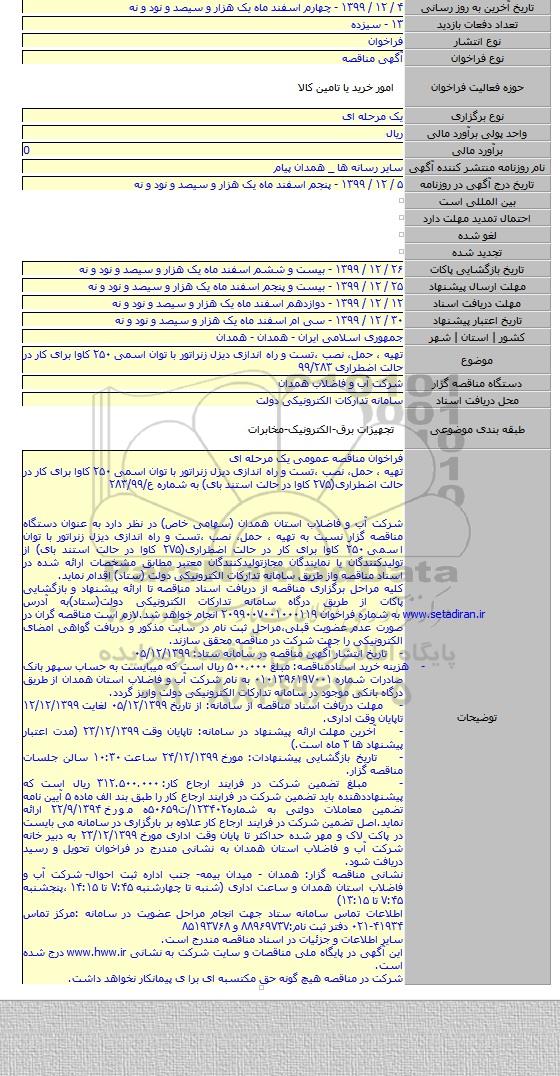 تاریخ آخرین به روز رسانی ۴ / ۱۲ / ۱۳۹۹ - چهارم اسفند ماه یک هزار و سیصد و نود و نه
تعداد دفعات بازدید ۱۳ - سیزده
نوع انتشار فراخوان
نوع فراخوان آگهی مناقصه
حوزه فعالیت فراخوان امور خرید یا تامین کالا
نوع برگزاری یک مرحله ای
واحد پولی برآورد مالی ریال
برآورد مالی 0
نام روزنامه منتشر کننده آگهی سایر رسانه ها _ همدان پیام
تاریخ درج آگهی در روزنامه ۵ / ۱۲ / ۱۳۹۹ - پنجم اسفند ماه یک هزار و سیصد و نود و نه
بین المللی است
احتمال تمدید مهلت دارد
لغو شده
تجدید شده
تاریخ بازگشایی پاکات ۲۶ / ۱۲ / ۱۳۹۹ - بیست و ششم اسفند ماه یک هزار و سیصد و نود و نه
مهلت ارسال پیشنهاد ۲۵ / ۱۲ / ۱۳۹۹ - بیست و پنجم اسفند ماه یک هزار و سیصد و نود و نه
مهلت دریافت اسناد ۱۲ / ۱۲ / ۱۳۹۹ - دوازدهم اسفند ماه یک هزار و سیصد و نود و نه
تاریخ اعتبار پیشنهاد ۳۰ / ۱۲ / ۱۳۹۹ - سی ام اسفند ماه یک هزار و سیصد و نود و نه
کشور | استان | شهر جمهوری اسلامی ایران - همدان - همدان
موضوع تهیه ، حمل، نصب ،تست و راه اندازی دیزل ژنراتور با توان اسمی ۲۵۰ کاوا برای کار در
حالت اضطراری ۹۹/۲۸۳
دستگاه مناقصه گزار شرکت آب و فاضلاب همدان
محل دریافت اسناد سامانه تدارکات الکترونیکی دولت
طبقه بندی موضوعی تجهیزات برق-الکترونیک-مخابرات
توضیحات
فراخوان مناقصه عمومی یک مرحله ای
تهیه ، حمل، نصب ،تست و راه اندازی دیزل ژنراتور با توان اسمی ۲۵۰ کاوا برای کار در
حالت اضطراری(۲۷۵ کاوا در حالت استند بای) به شماره ع/۲۸۳/۹۹
شرکت آب و فاضلاب استان همدان (سهامی خاص) در نظر دارد به عنوان دستگاه
مناقصه گزار نسبت به تهیه ، حمل، نصب ،تست و راه اندازی دیزل ژنراتور با توان
اسمی ۲۵۰ کاوا برای کار در حالت اضطراری(۲۷۵ کاوا در حالت استند بای) از
تولیدکنندگان یا نمایندگان مجازتولیدکنندگان معتبر مطابق مشخصات ارائه شده در
اسناد مناقصه واز طریق سامانه تدارکات الکترونیکی دولت (ستاد) اقدام نماید.
کلیه مراحل برگزاری مناقصه از دریافت اسناد مناقصه تا ارائه پیشنهاد و بازگشایی
پاکات از طریق درگاه سامانه تدارکات الکترونیکی دولت(ستاد)به آدرس
www.setadiran.ir به شماره فراخوان ۲۰۹۹۰۰۷۰۰۱۰۰۰۱۱۹ انجام خواهد شد.لازم است مناقصه گران در
صورت عدم عضویت قبلی،مراحل ثبت نام در سایت مذکور و دریافت گواهی امضای
الکترونیکی را جهت شرکت در مناقصه محقق سازند.
- تاریخ انتشار آگهی مناقصه در سامانه ستاد: ۰۵/۱۲/۱۳۹۹
- هزینه خرید اسنادمناقصه: مبلغ ۵۰۰.۰۰۰ ریال است که میبایست به حساب سپهر بانک
صادرات شماره ۰۱۰۱۳۹۶۱۹۷۰۰۱ به نام شرکت آب و فاضلاب استان همدان از طریق
درگاه بانکی موجود در سامانه تدارکات الکترونیکی دولت واریز گردد.
- مهلت دریافت اسناد مناقصه از سامانه: از تاریخ ۰۵/۱۲/۱۳۹۹ لغایت ۱۲/۱۲/۱۳۹۹
تاپایان وقت اداری.
- آخرین مهلت ارائه پیشنهاد در سامانه: تاپایان وقت ۲۳/۱۲/۱۳۹۹ (مدت اعتبار
پیشنهاد ها ۳ ماه است.)
- تاریخ بازگشایی پیشنهادات: مورخ ۲۴/۱۲/۱۳۹۹ ساعت ۱۰:۳۰ سالن جلسات
مناقصه گزار.
- مبلغ تضمین شرکت در فرایند ارجاع کار: ۳۱۲.۵۰۰.۰۰۰ ریال است که
پیشنهاددهنده باید تضمین شرکت در فرایند ارجاع کار را طبق بند الف ماده ۵ آیین نامه
تضمین معاملات دولتی به شماره۱۲۳۴۰۲/ت۵۰۶۵۹ه مورخ ۲۲/۹/۱۳۹۴ ارائه
نماید.اصل تضمین شرکت در فرایند ارجاع کار علاوه بر بارگزاری در سامانه می بایست
در پاکت لاک و مهر شده حداکثر تا پایان وقت اداری مورخ ۲۳/۱۲/۱۳۹۹ به دبیر خانه
شرکت آب و فاضلاب استان همدان به نشانی مندرج در فراخوان تحویل و رسید
دریافت شود.
نشانی مناقصه گزار: همدان - میدان بیمه- جنب اداره ثبت احوال- شرکت آب و
فاضلاب استان همدان و ساعت اداری (شنبه تا چهارشنبه ۷:۴۵ تا ۱۴:۱۵ ،پنجشنبه
۷:۴۵ تا ۱۳:۱۵)
اطلاعات تماس سامانه ستاد جهت انجام مراحل عضویت در سامانه :مرکز تماس
۰۲۱-۴۱۹۳۴ دفتر ثبت نام:۸۸۹۶۹۷۳۷ و ۸۵۱۹۳۷۶۸
سایر اطلاعات و جزئیات در اسناد مناقصه مندرج است.
این آگهی در پایگاه ملی مناقصات و سایت شرکت به نشانی www.hww.ir درج شده
است.
شرکت در مناقصه هیچ گونه حق مکتسبه ای برا ی پیمانکار نخواهد داشت.